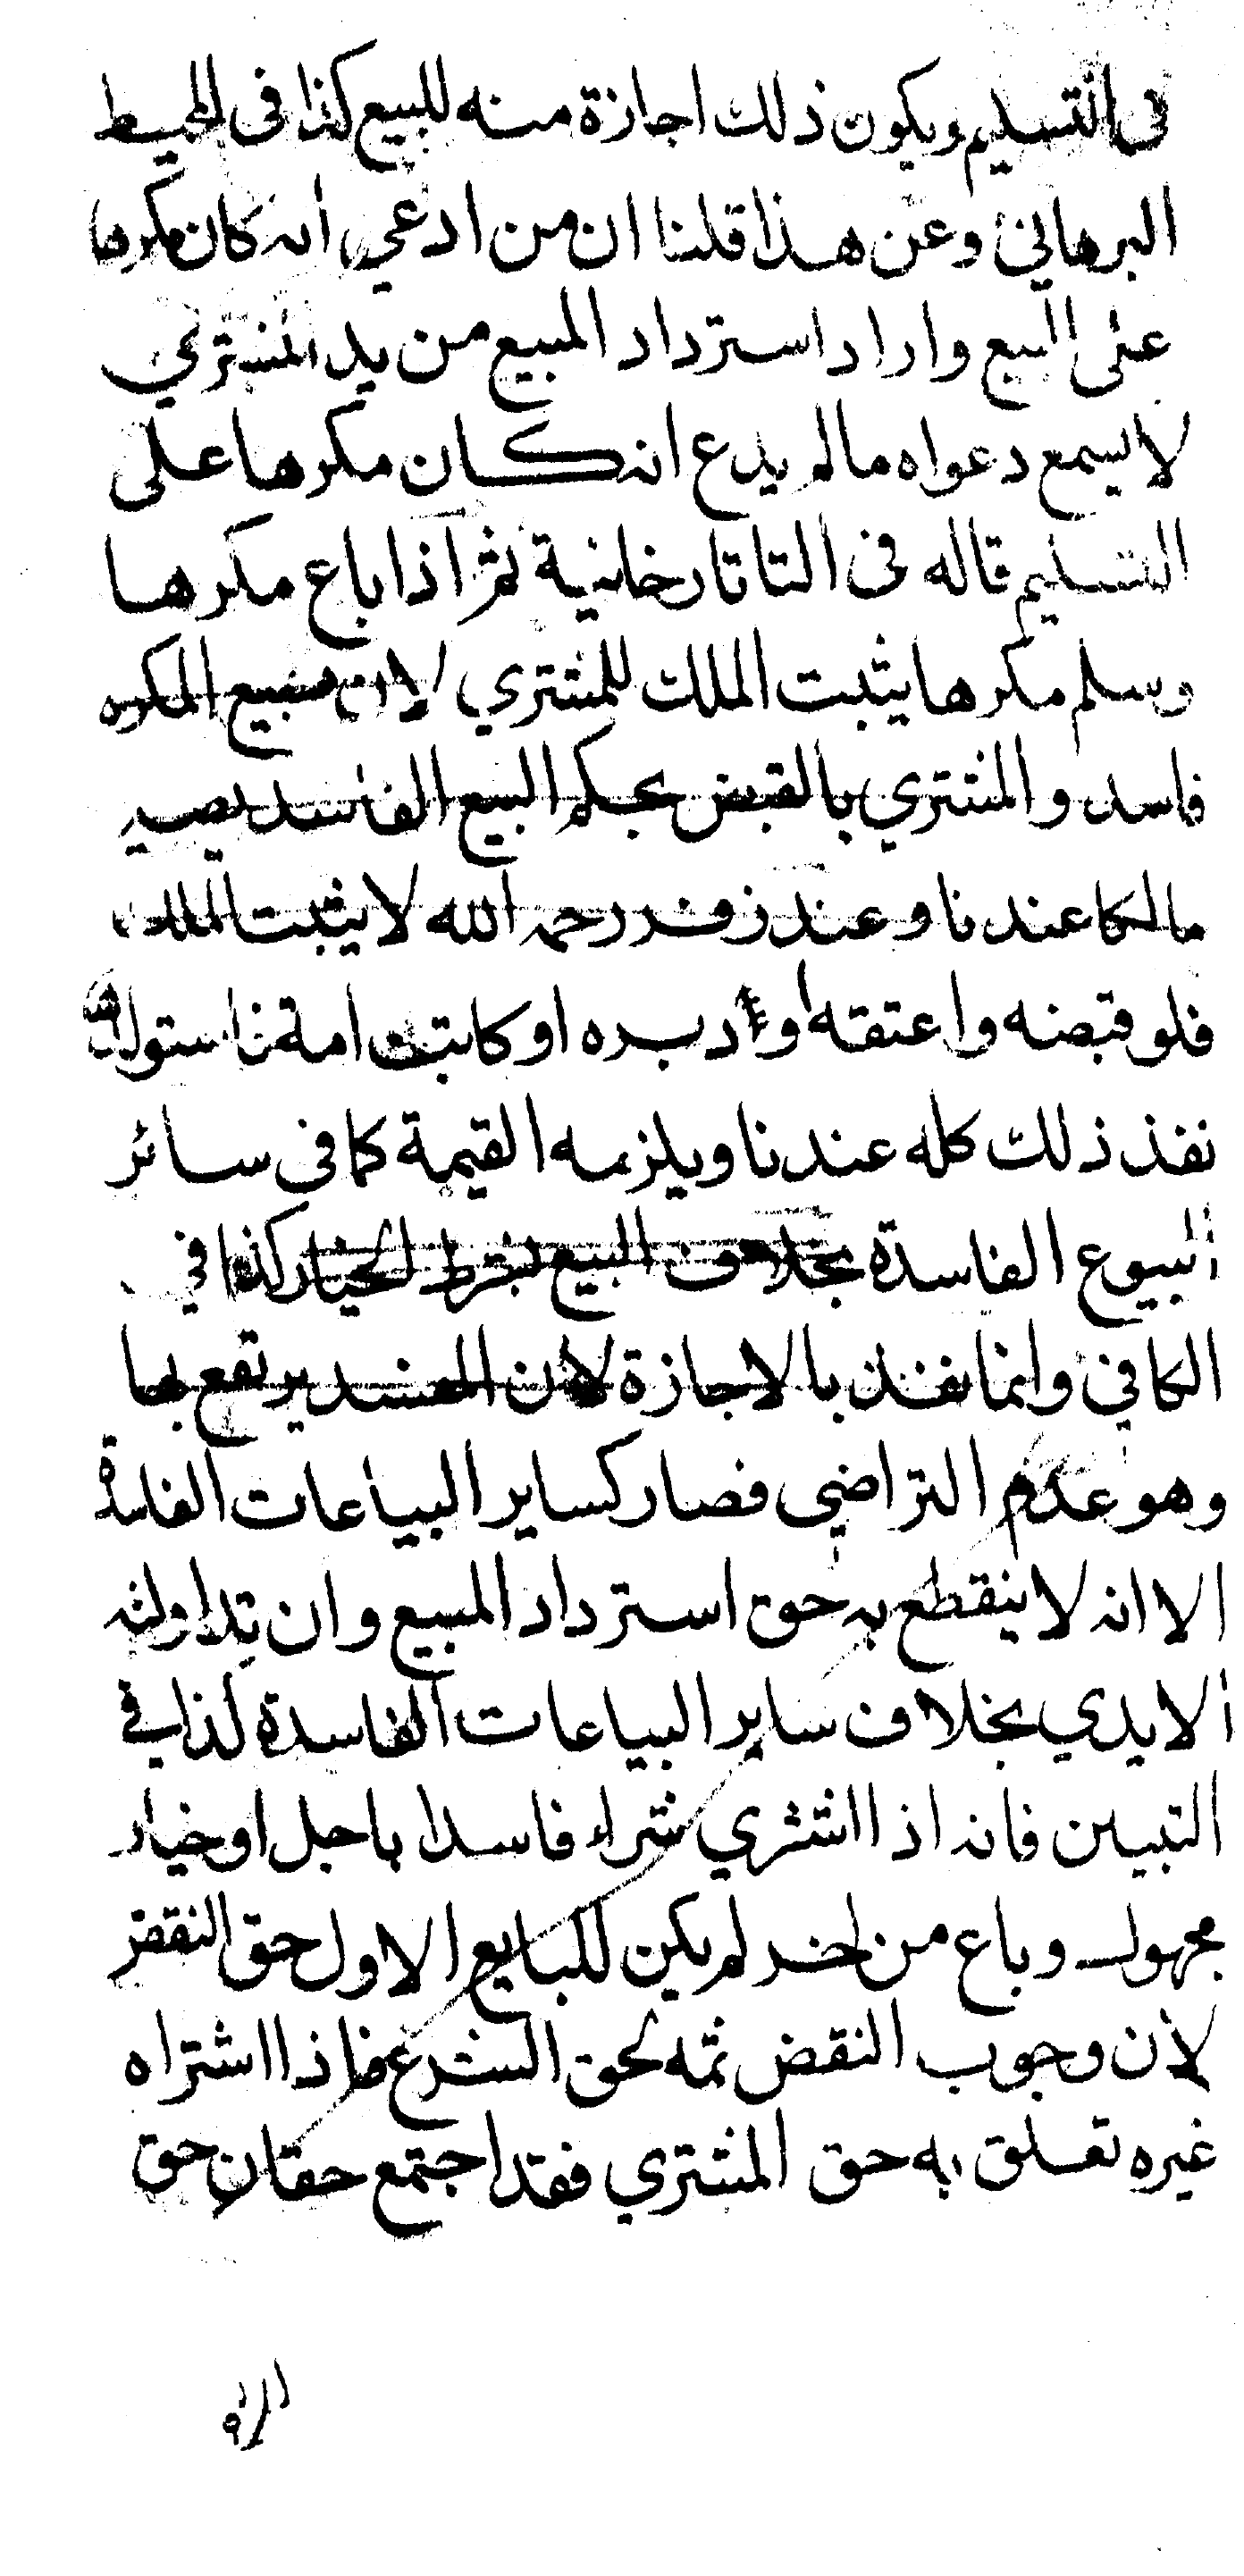 في التسليم ويكون ذلك اجازة منه للبيع كذا في المحيط
البرهاني وعن هذا قلنا ان من ادعي انه كان مكرها
على البيع واراد استرداد المبيع من يد المشتري
لا يسمع دعواه مالم يدع انه كان مكرها على
التسليم قاله في التاتارخانية ثم اذا باع مكرها
وسلم مكرها يثبت الملك للمشتري لان بيع المكره
فاسد والمشتري بالقبض بحكم البيع الفاسد يصير
مالكا عندنا وعند زفر رحمه الله لا يثبت الملك
فلو قبضه واعتقه او دبره او كاتبت امة فاستولد
نفذ ذلك كله عندنا ويلزمه القيمة كما في سائر
البيوع الفاسدة بخلاف البيع بشرط الخيار كذا في
الكافي وانما نفذ بالاجازة لان المفسد يرتفع بها
وهو عدم التراضي فصار كساير البياعات الفاسدة
الا انه لا ينقطع به حق استرداد المبيع وان تداولته
الايدي بخلاف ساير البياعات الفاسدة كذا في
التبيين فانه اذا اشتري شراء فاسدا باجل او خيار
مجهول وباع من اخر لم يكن للبايع الاول حق النقض
لان وجوب النقض ثمه لحق الشرع فاذا اشتراه
غيره تعلق به حق المشتري فقد اجتمع حقان حق